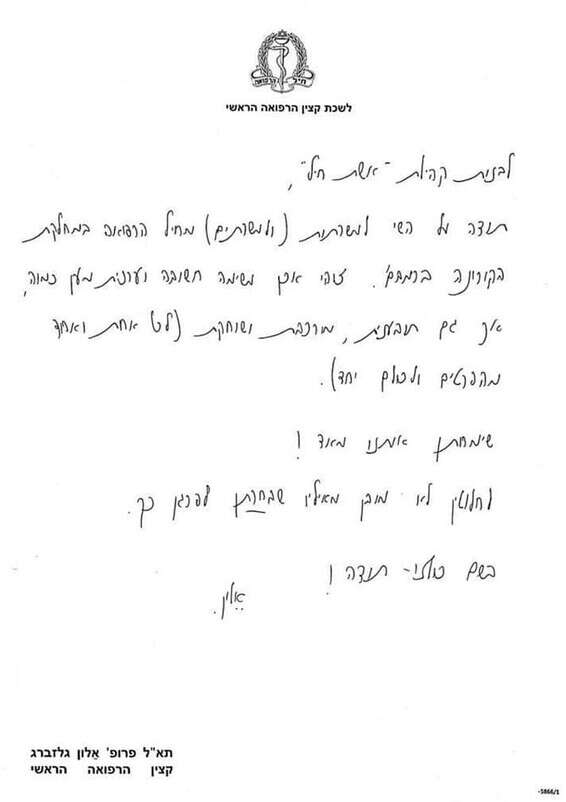 חיל הרפואה
לשכת קצין הרפואה הראשי
לבנות קהילת "אשת חיל",
תודה על השי למשרתות (ולמשרתים) מחיל הרפואה במחלקת
הקורונה ברמב"ם. זוהי אכן משימה חשובה וערכית מאין כמוה,
אך גם תובענית, מורכבת ושוחקת (לכל אחת ואחד
מהפרטים ולכולם יחד).
שימחתן אותנו מאוד!
לחלוטין לא מובן מאיליו שבחרתן לפרגן כך.
בשם כולנו - תודה!
אלון.
תא"ל פרופ' אֵלון גלזברג
קצין הרפואה הראשי
-5866/1